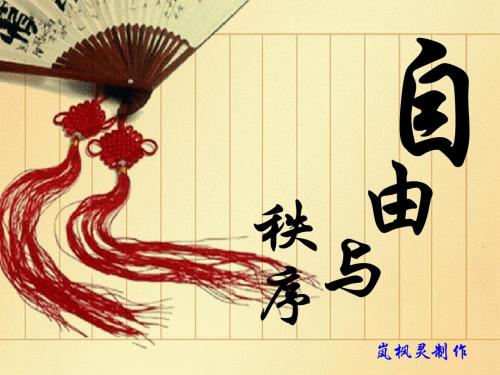 自由与
秩序
岚枫灵制作